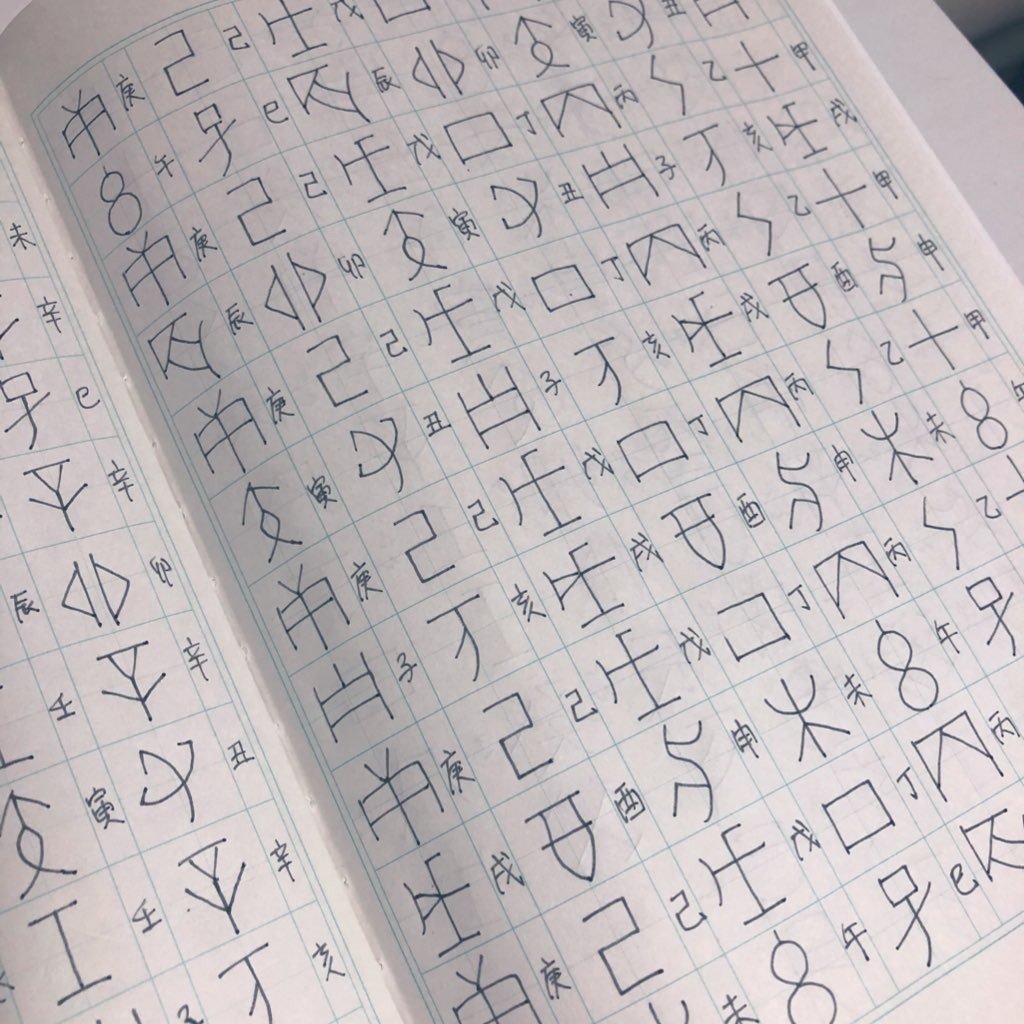 甲戌甲申甲午
丑乙亥乙酉乙未乙
寅丙子丙戌丙申丙午丙
卯丁丑丁亥丁酉丁未丁巳
戊辰戊寅戊子戊戌戊申戊午
己巳己卯己丑己亥己酉己未
庚午庚辰庚寅庚子庚戌庚
未辛巳辛卯辛丑辛亥
辰壬寅壬子